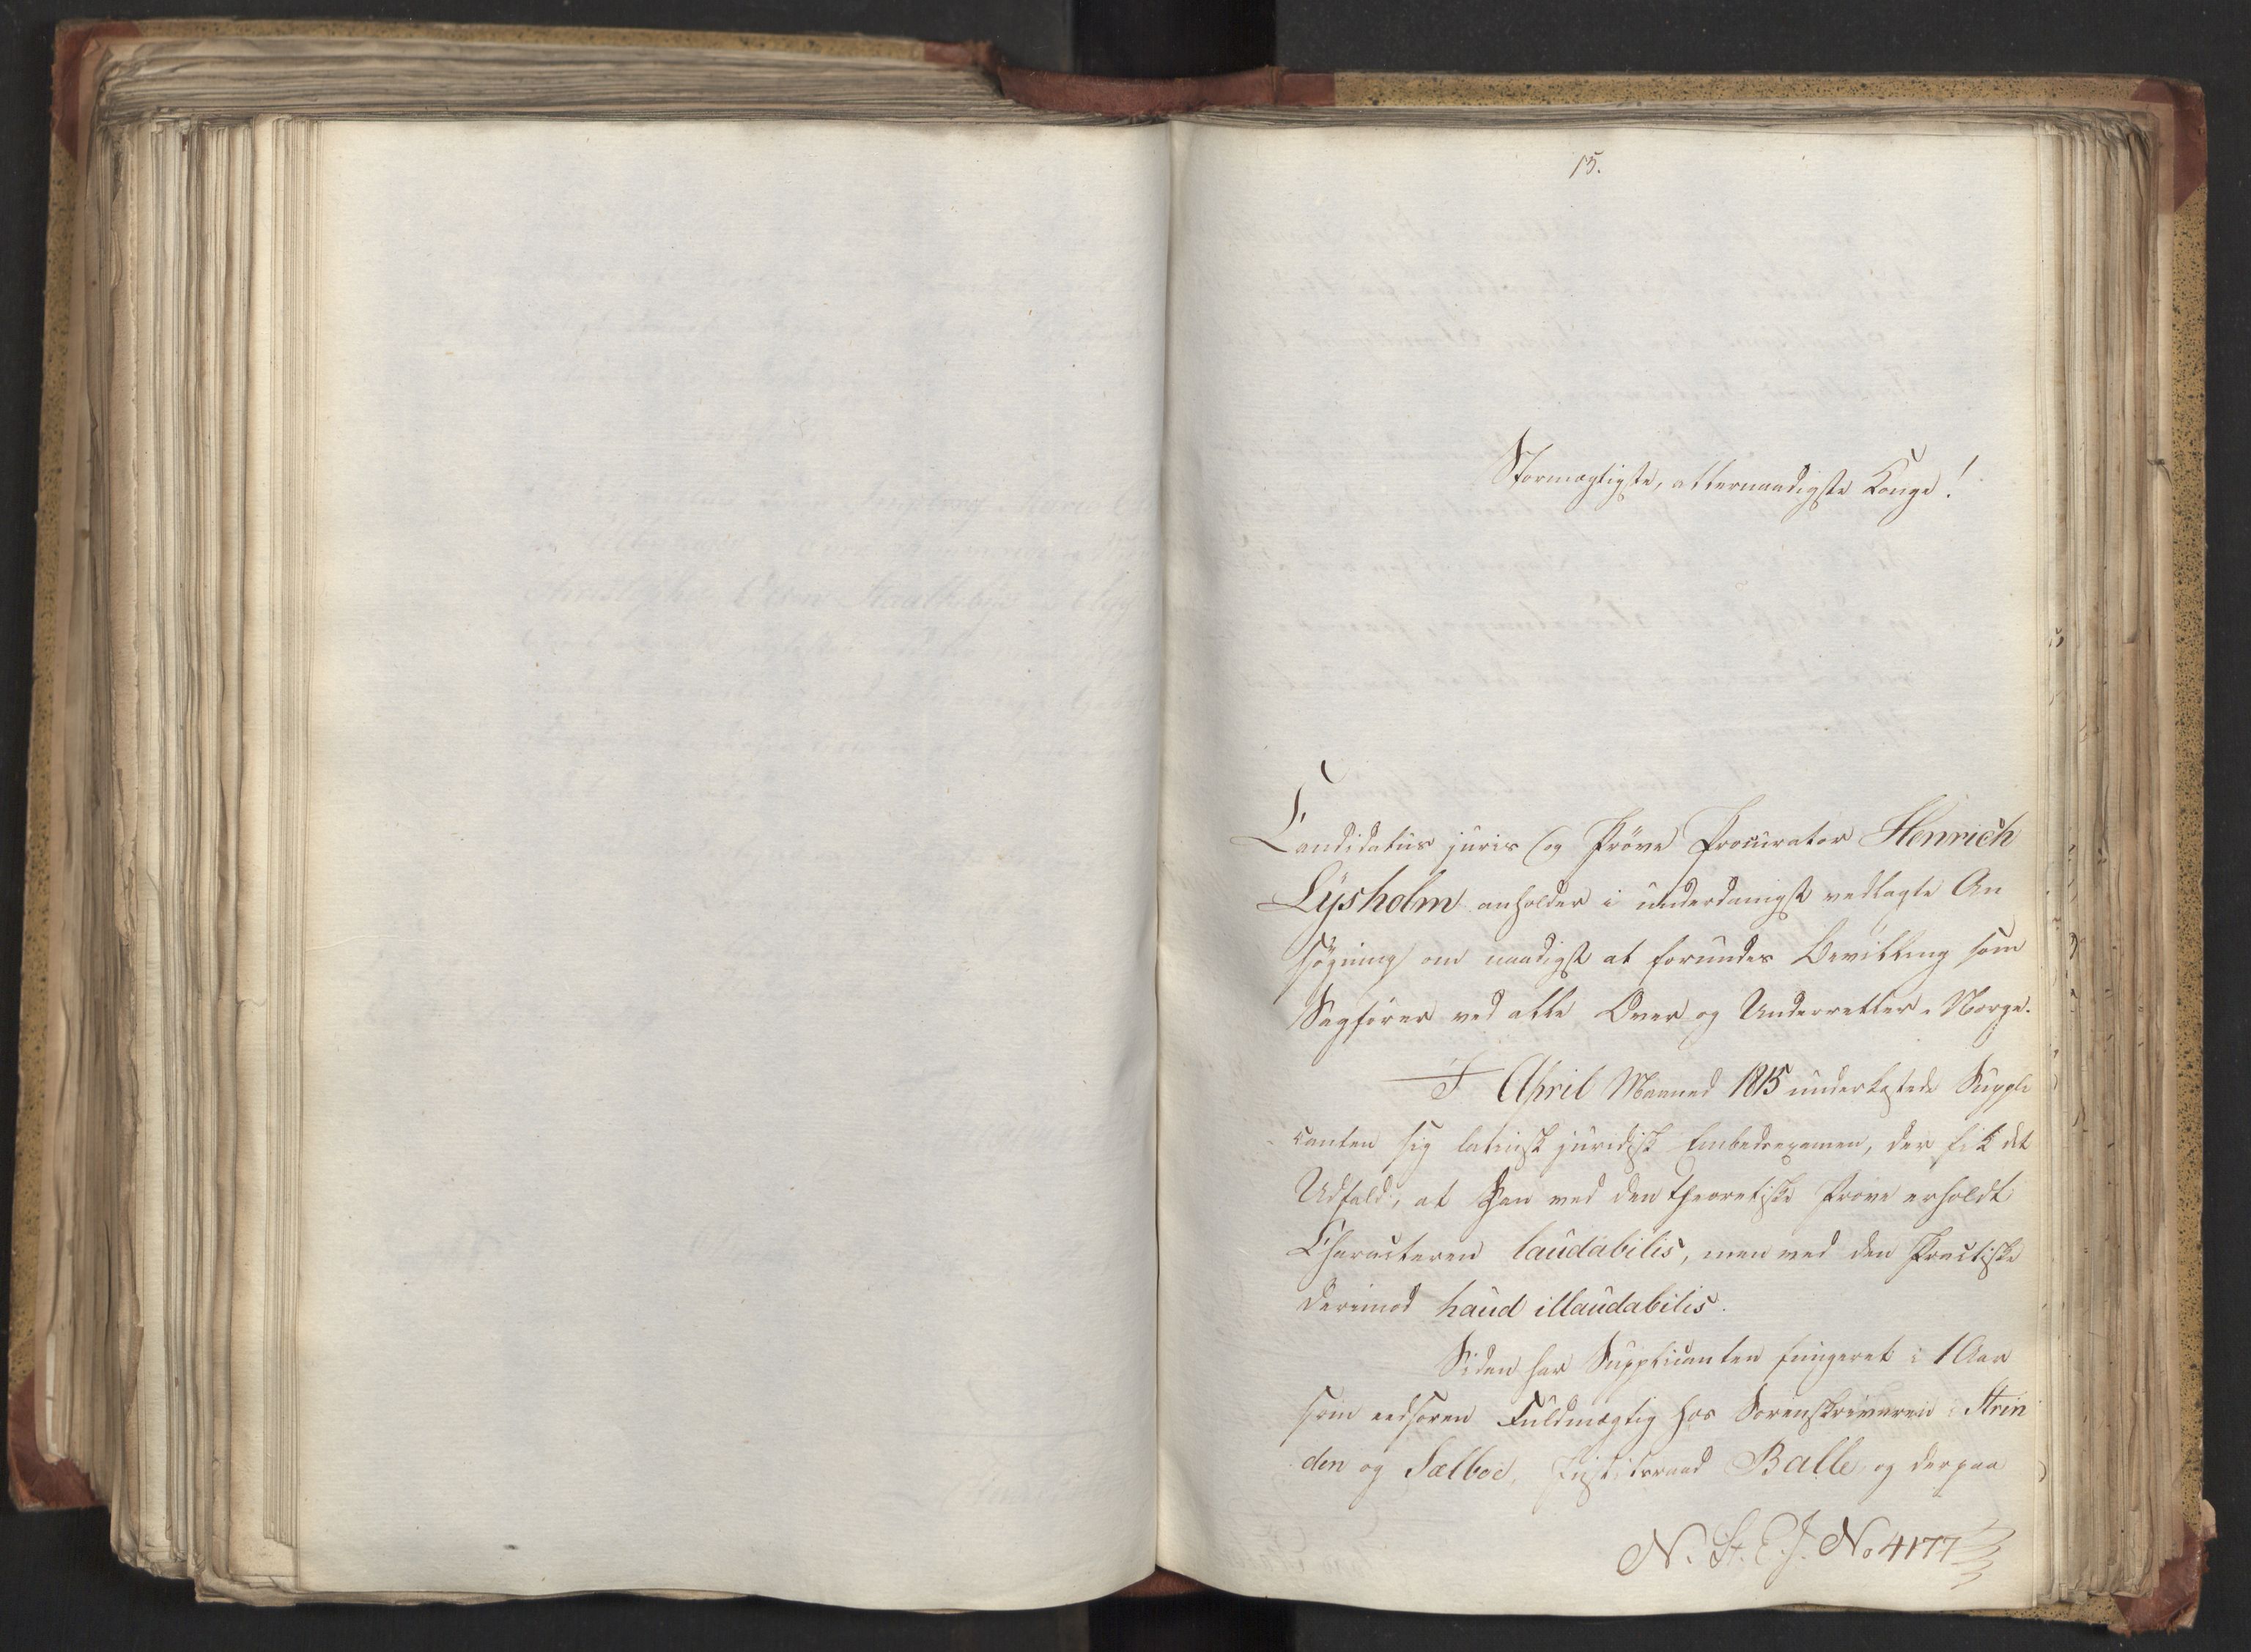 15.
Stormægtigste, allernaadigste Konge!
Candidatus juris og Prøve Procurator Henrich
Lysholm anholder i underdanigst vedlagte An
søgning om naadigst at forundes Bevilling som
Sagfører ved alle Over og Underretter i Norge.
I April Maaned 1815 underkastede Suppli
canten sig latinsk juridisk Embedsexamen, der fik det
Udfald, at han ved den theoretiske Prøve erholdt
Characteren laudabilis, men ved den Practiske
derimod haud illaudabilis.
Siden har Supplicanten fungeret i 1 Aar
som eedsoren Fuldmægtig hos Sorenskriveren i Strin
den og Sælboe, Justitsraad Balle, og derpaa
N. St. E. J. No 4177